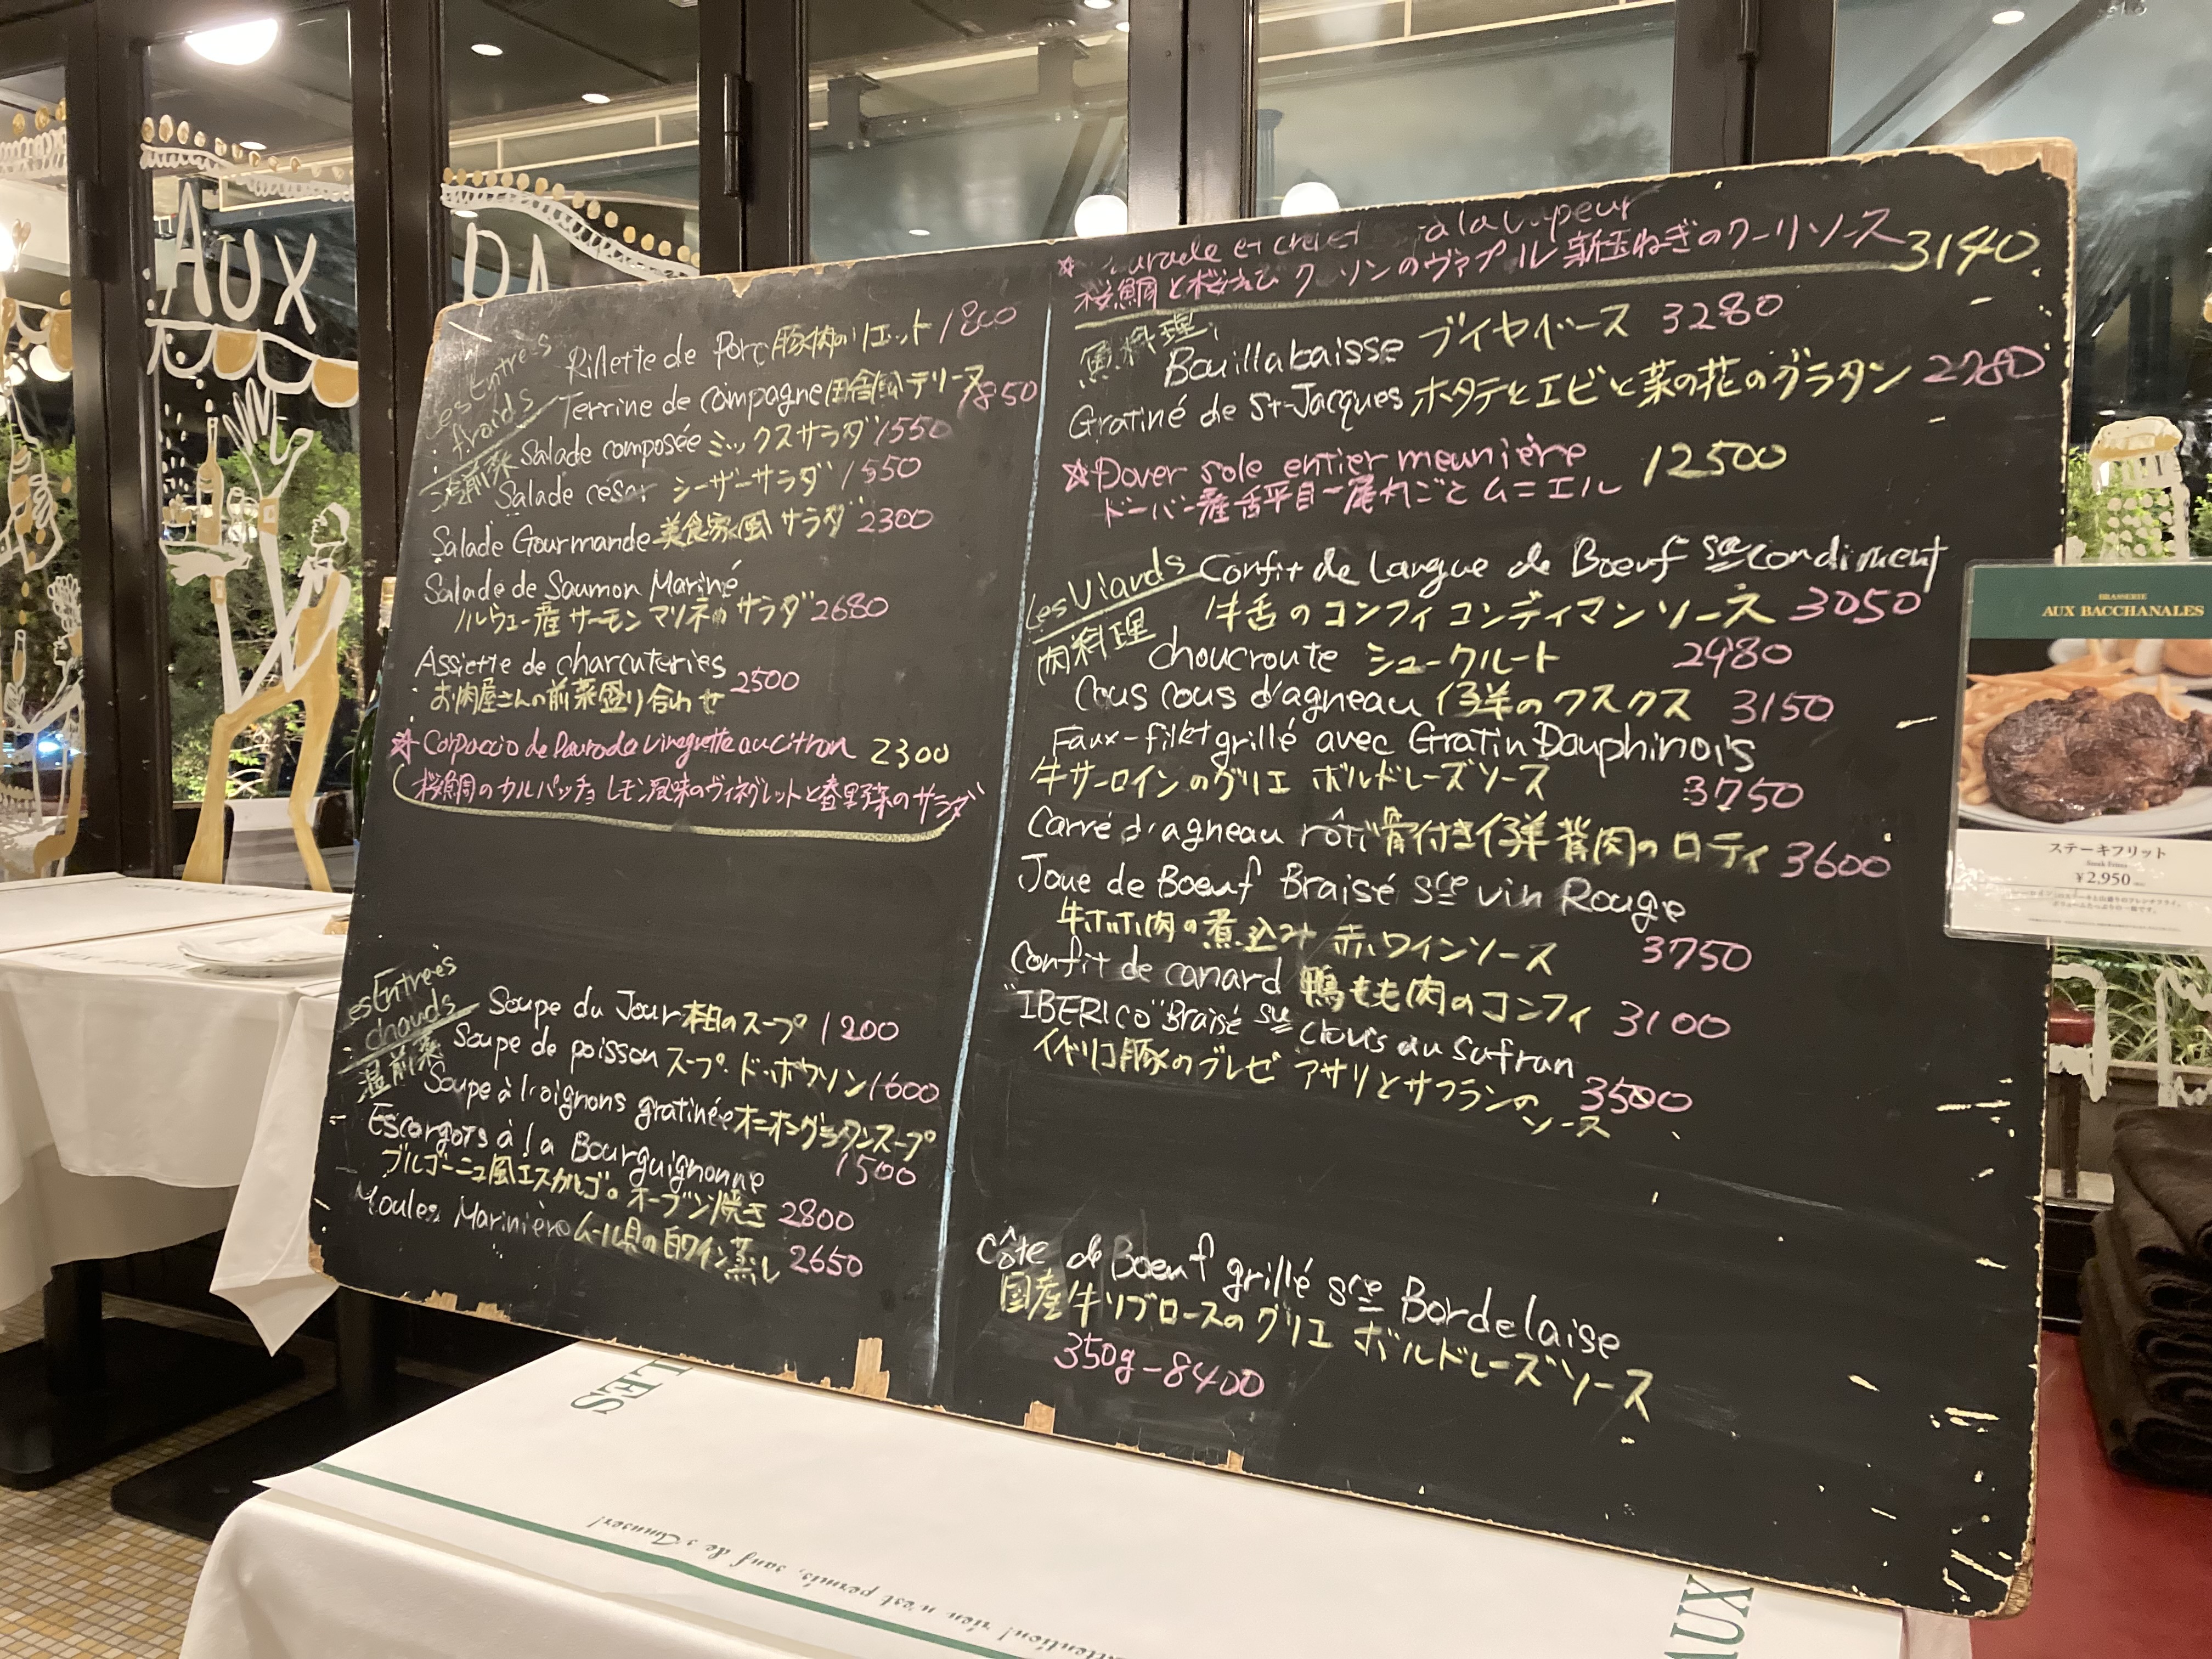 AUX
Les Entrées
froids
冷前菜
Rillette de Porc 豚肉のリエット 1800
Terrine de campagne 田舎風テリーヌ 1850
Salade composée ミックスサラダ 1550
Salade césar シーザーサラダ 1550
Salade Gourmande 美食家風サラダ 2300
Salade de Saumon Mariné
ノルウェー産サーモンマリネのサラダ 2680
Assiette de charcuteries
お肉屋さんの前菜盛り合わせ 2500
☆ Carpaccio de Daurade vinegrette au citron 2300
桜鯛のカルパッチョ レモン風味のヴィネグレットと春野菜のサラダ
Les Entrées
chauds
温前菜
Soupe du Jour 本日のスープ 1200
Soupe de poisson スープ・ド・ポワソン 1600
Soupe à l'oignons gratinée オニオングラタンスープ
1500
Escargots à la Bourguignonne
ブルゴーニュ風エスカルゴのオーブン焼き 2800
Moules Marinière ムール貝の白ワイン蒸し 2650
☆ et à la vapeur
桜鯛と桜えび のヴァプール 新玉ねぎのクーリソース 3140
魚料理
Bouillabaisse ブイヤベース 3280
Gratiné de St-Jacques ホタテとエビと菜の花のグラタン 2780
☆ Dover sole entier meunière
ドーバー産舌平目一尾丸ごとムニエル 12500
Les Viands
肉料理
Confit de Langue de Boeuf sce condiment
牛舌のコンフィ コンディマンソース 3050
choucroute シュークルート 2980
Cous cous d'agneau 仔羊のクスクス 3150
Faux-filet grillé avec Gratin Dauphinois
牛サーロインのグリエ ボルドレーズソース 3750
Carré d'agneau rôti 骨付き仔羊背肉のロティ 3600
Joue de Boeuf Braisé sce vin Rouge
牛ホホ肉の煮込み 赤ワインソース 3750
Confit de canard 鴨もも肉のコンフィ 3100
"IBERICO" Braisé sce clovis au Safran
イベリコ豚のブレゼ アサリとサフランの
ソース 3500
Côte de Boeuf grillé sce Bordelaise
国産牛リブロースのグリエ ボルドレーズソース
350g-8400
BRASSERIE
AUX BACCHANALES
ステーキフリット
Steak Frites
¥2,950
LES
rien n'est permis, sauf de s'Amuser!
AUX